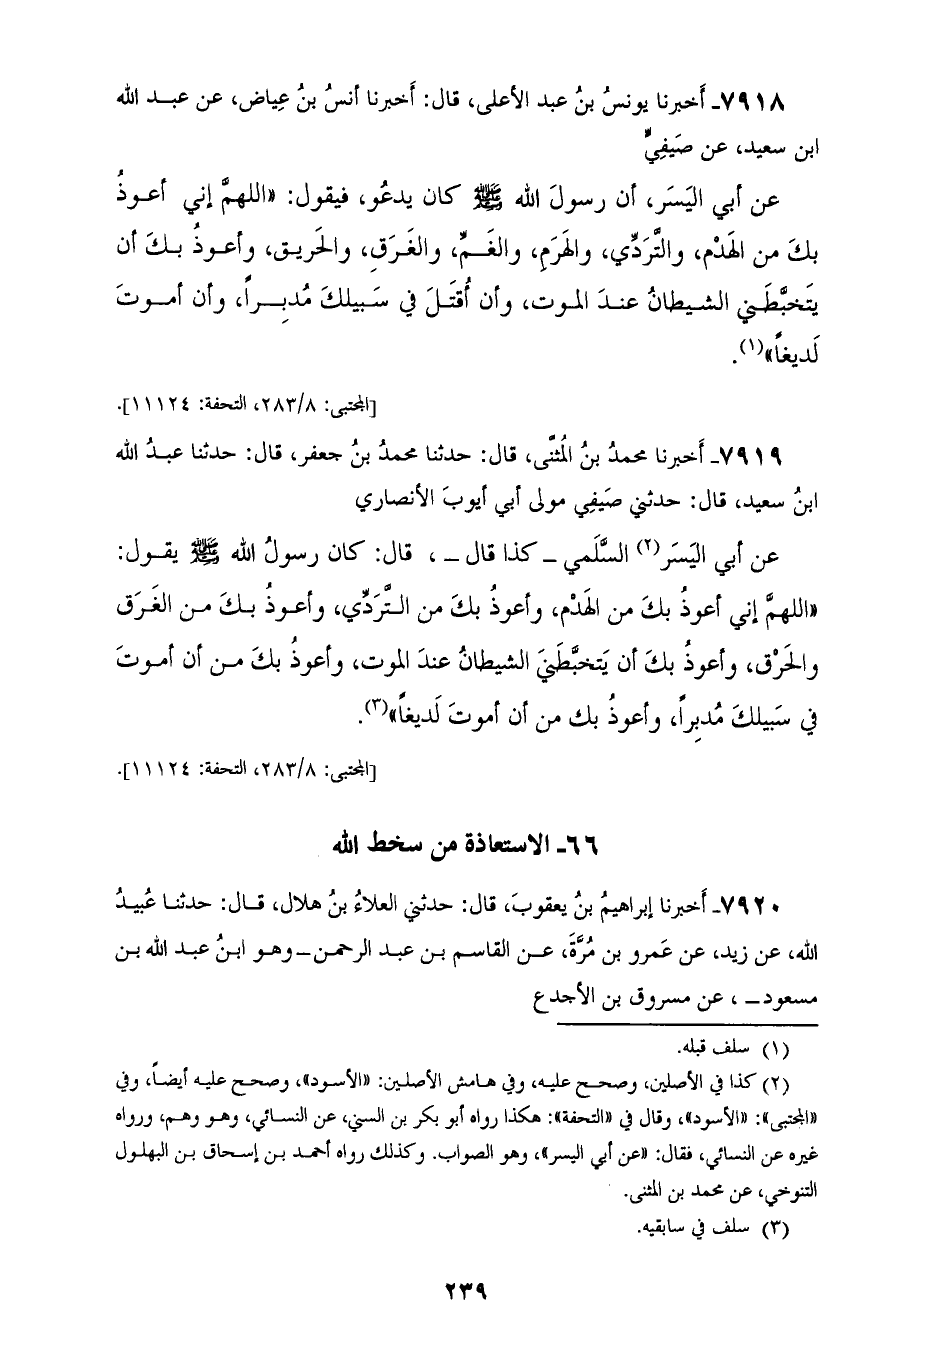 ٧٩١٨ـ أَخبرنا يونسُ بنُ عبد الأعلى، قال: أَخبرنا أنسُ بنُ عِياض، عن عبـد الله
ابن سعيد، عن صَيفِيٍّ
عن أبي اليَسَر، أن رسولَ الله ﷺ كان يدعُو، فيقول: «اللهمَّ إني أعـوذُ
بكَ من الهَدْم، والتَّرَدِّي، والهَرَمِ، والغَـمِّ، والغَرَقِ، والحَريـق، وأعـوذُ بـكَ أن
يَتخبَّطَـني الشـيطانُ عنـدَ المـوت، وأن أُقتَـلَ في سَـبيلكَ مُدبِـراً، وأن أمـوتَ
لَديغاً»(١).
[المجتبى: ٢٨٣/٨، التحفة: ١١١٢٤].
٧٩١٩ـ أَخبرنا محمدُ بنُ المُثنَّى، قال: حدثنا محمدُ بنُ جعفر، قال: حدثنا عبدُ الله
ابنُ سعيد، قال: حدثني صَيفِي مولى أبي أيوبَ الأنصاري
عن أبي اليَسَر(٢) السَّلَمي ـ كذا قال ـ ، قال: كان رسولُ الله ﷺ يقـول:
«اللهمَّ إني أعوذُ بكَ من الهَدْم، وأعوذُ بكَ من التَّرَدِّي، وأعـوذُ بـكَ مـن الغَرَق
والحَرْق، وأعوذُ بكَ أن يَتخبَّطَنيَ الشيطانُ عندَ الموت، وأعوذُ بكَ مـن أن أمـوتَ
في سَبيلكَ مُدبِراً، وأعوذُ بك من أن أموتَ لَديغاً»(٣).
[المجتبى: ٢٨٣/٨، التحفة: ١١١٢٤].
٦٦ـ الاستعاذة من سخط الله
٧٩٢٠ـ أَخبرنا إبراهيمُ بنُ يعقوبَ، قال: حدثني العلاءُ بنُ هلال، قـال: حدثنـا عُبيدُ
الله، عن زيد، عن عَمرو بن مُرَّةَ، عـن القاسـم بـن عبـد الرحمـن ـ وهـو ابـنُ عبـد الله بـن
مسعود ـ ، عن مسروق بن الأجدع
(١) سلف قبله.
(٢) كذا في الأصلين، وصحـح عليه، وفي هـامش الأصلـين: «الأسـود»، وصحـح عليـه أيضـاً، وفي
«المجتبى»: «الأسود»، وقال في «التحفة»: هكذا رواه أبو بكر بن السني، عن النسـائي، وهـو وهـم، ورواه
غيره عن النسائي، فقال: «عن أبي اليسر»، وهو الصواب. وكذلك رواه أحمـد بـن إسـحاق بـن البهلـول
التنوخي، عن محمد بن المثنى.
(٣) سلف في سابقيه.
٢٣٩